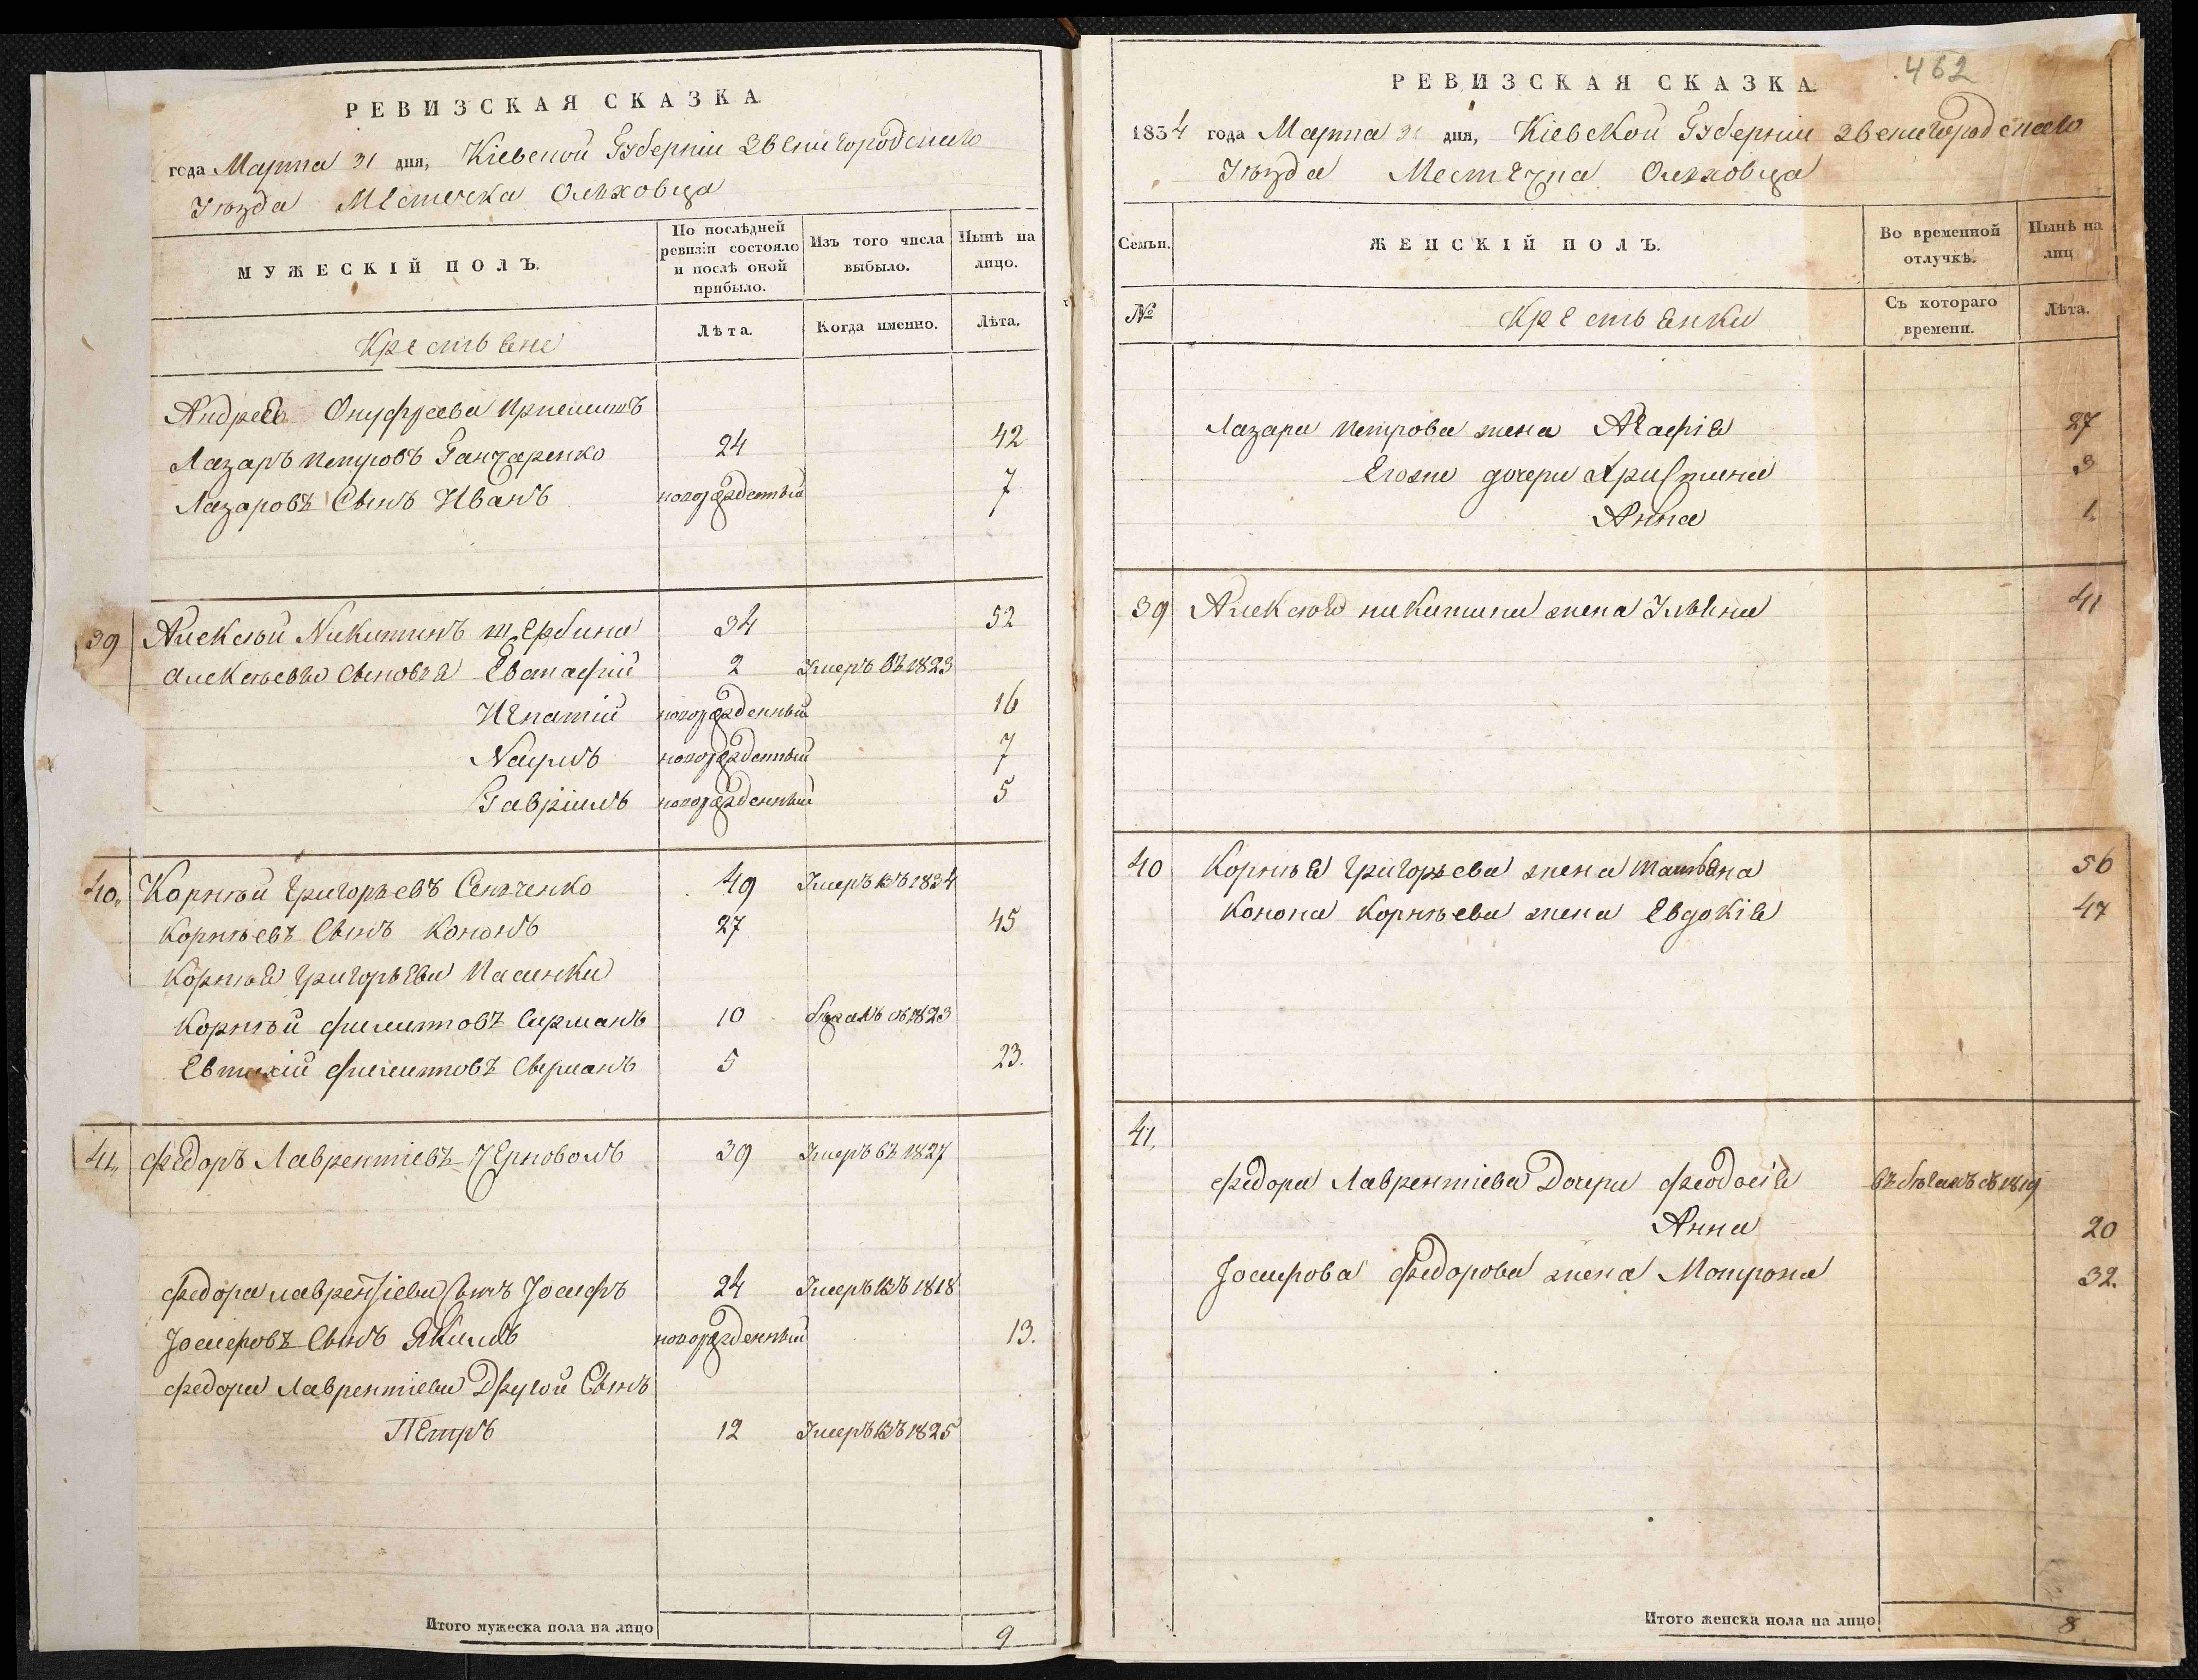 РЕВИЗСКАЯ СКАЗКА
года Марта 31 дня, Кіевской Губерніи Звенигородскаго
Уѣзда Местечка Ольховца
МУЖЕСКІЙ ПОЛЪ.
По послѣдней ревизіи состояло и послѣ оной прибыло.
Изъ того числа выбыло.
Нынѣ на лицо.
Крестьяне
Лѣта.
Когда именно.
Лѣта.
Андрея Онуфріева
Лазаръ Петровъ Ганчаренко 24 42
Лазаровъ Сынъ Иванъ новорожденный 7
39 Алексѣй Никитинъ Щербина 34 52
Алексѣевы Сыновья Евстафій 2 Умеръ въ 1823
Игнатій новорожденный 16
Наумъ новорожденный 7
Гавріилъ новорожденный 5
40. Корнѣй Григорьевъ Сенченко 49 Умеръ въ 1824
Корнѣевъ Сынъ Кононъ 27 45
Корнѣя Григорьева Пасинки
Корнѣй Филиповъ 10 бѣжалъ съ 1823
Евтихій Филиповъ 5 23.
41. Федоръ Лаврентіевъ Черноволъ 39 Умеръ въ 1827
Федора Лаврентіева Сынъ Іосифъ 24 Умеръ въ 1818
Іосифовъ Сынъ Якимъ новорожденный 13.
Федора Лаврентіева Другой Сынъ
Петръ 12 Умеръ въ 1825
Итого мужеска пола на лицо 9
462
РЕВИЗСКАЯ СКАЗКА
1834 года Марта 31 дня, Кіевской Губерніи Звенигородскаго
Уѣзда Местечка Ольховца
Семьи.
ЖЕНСКІЙ ПОЛЪ.
Во временной отлучкѣ.
Нынѣ на лиц
№
Крестьянки
Съ котораго времени.
Лѣта.
Лазара Петрова жена Агафія 27
Егоже дочери Христина 3
Анна 1.
39 Алексѣя Никитина жена Ульяна 41
40 Корнѣя Григорьева жена Татьяна 56
Конона Корнѣева жена Евдокія 47
41.
Федора Лаврентіева Дочери Феодосія въ бѣгахъ съ 1819
Анна 20
Іосифова Федорова жена Мотрона 32.
Итого женска пола на лицо 8